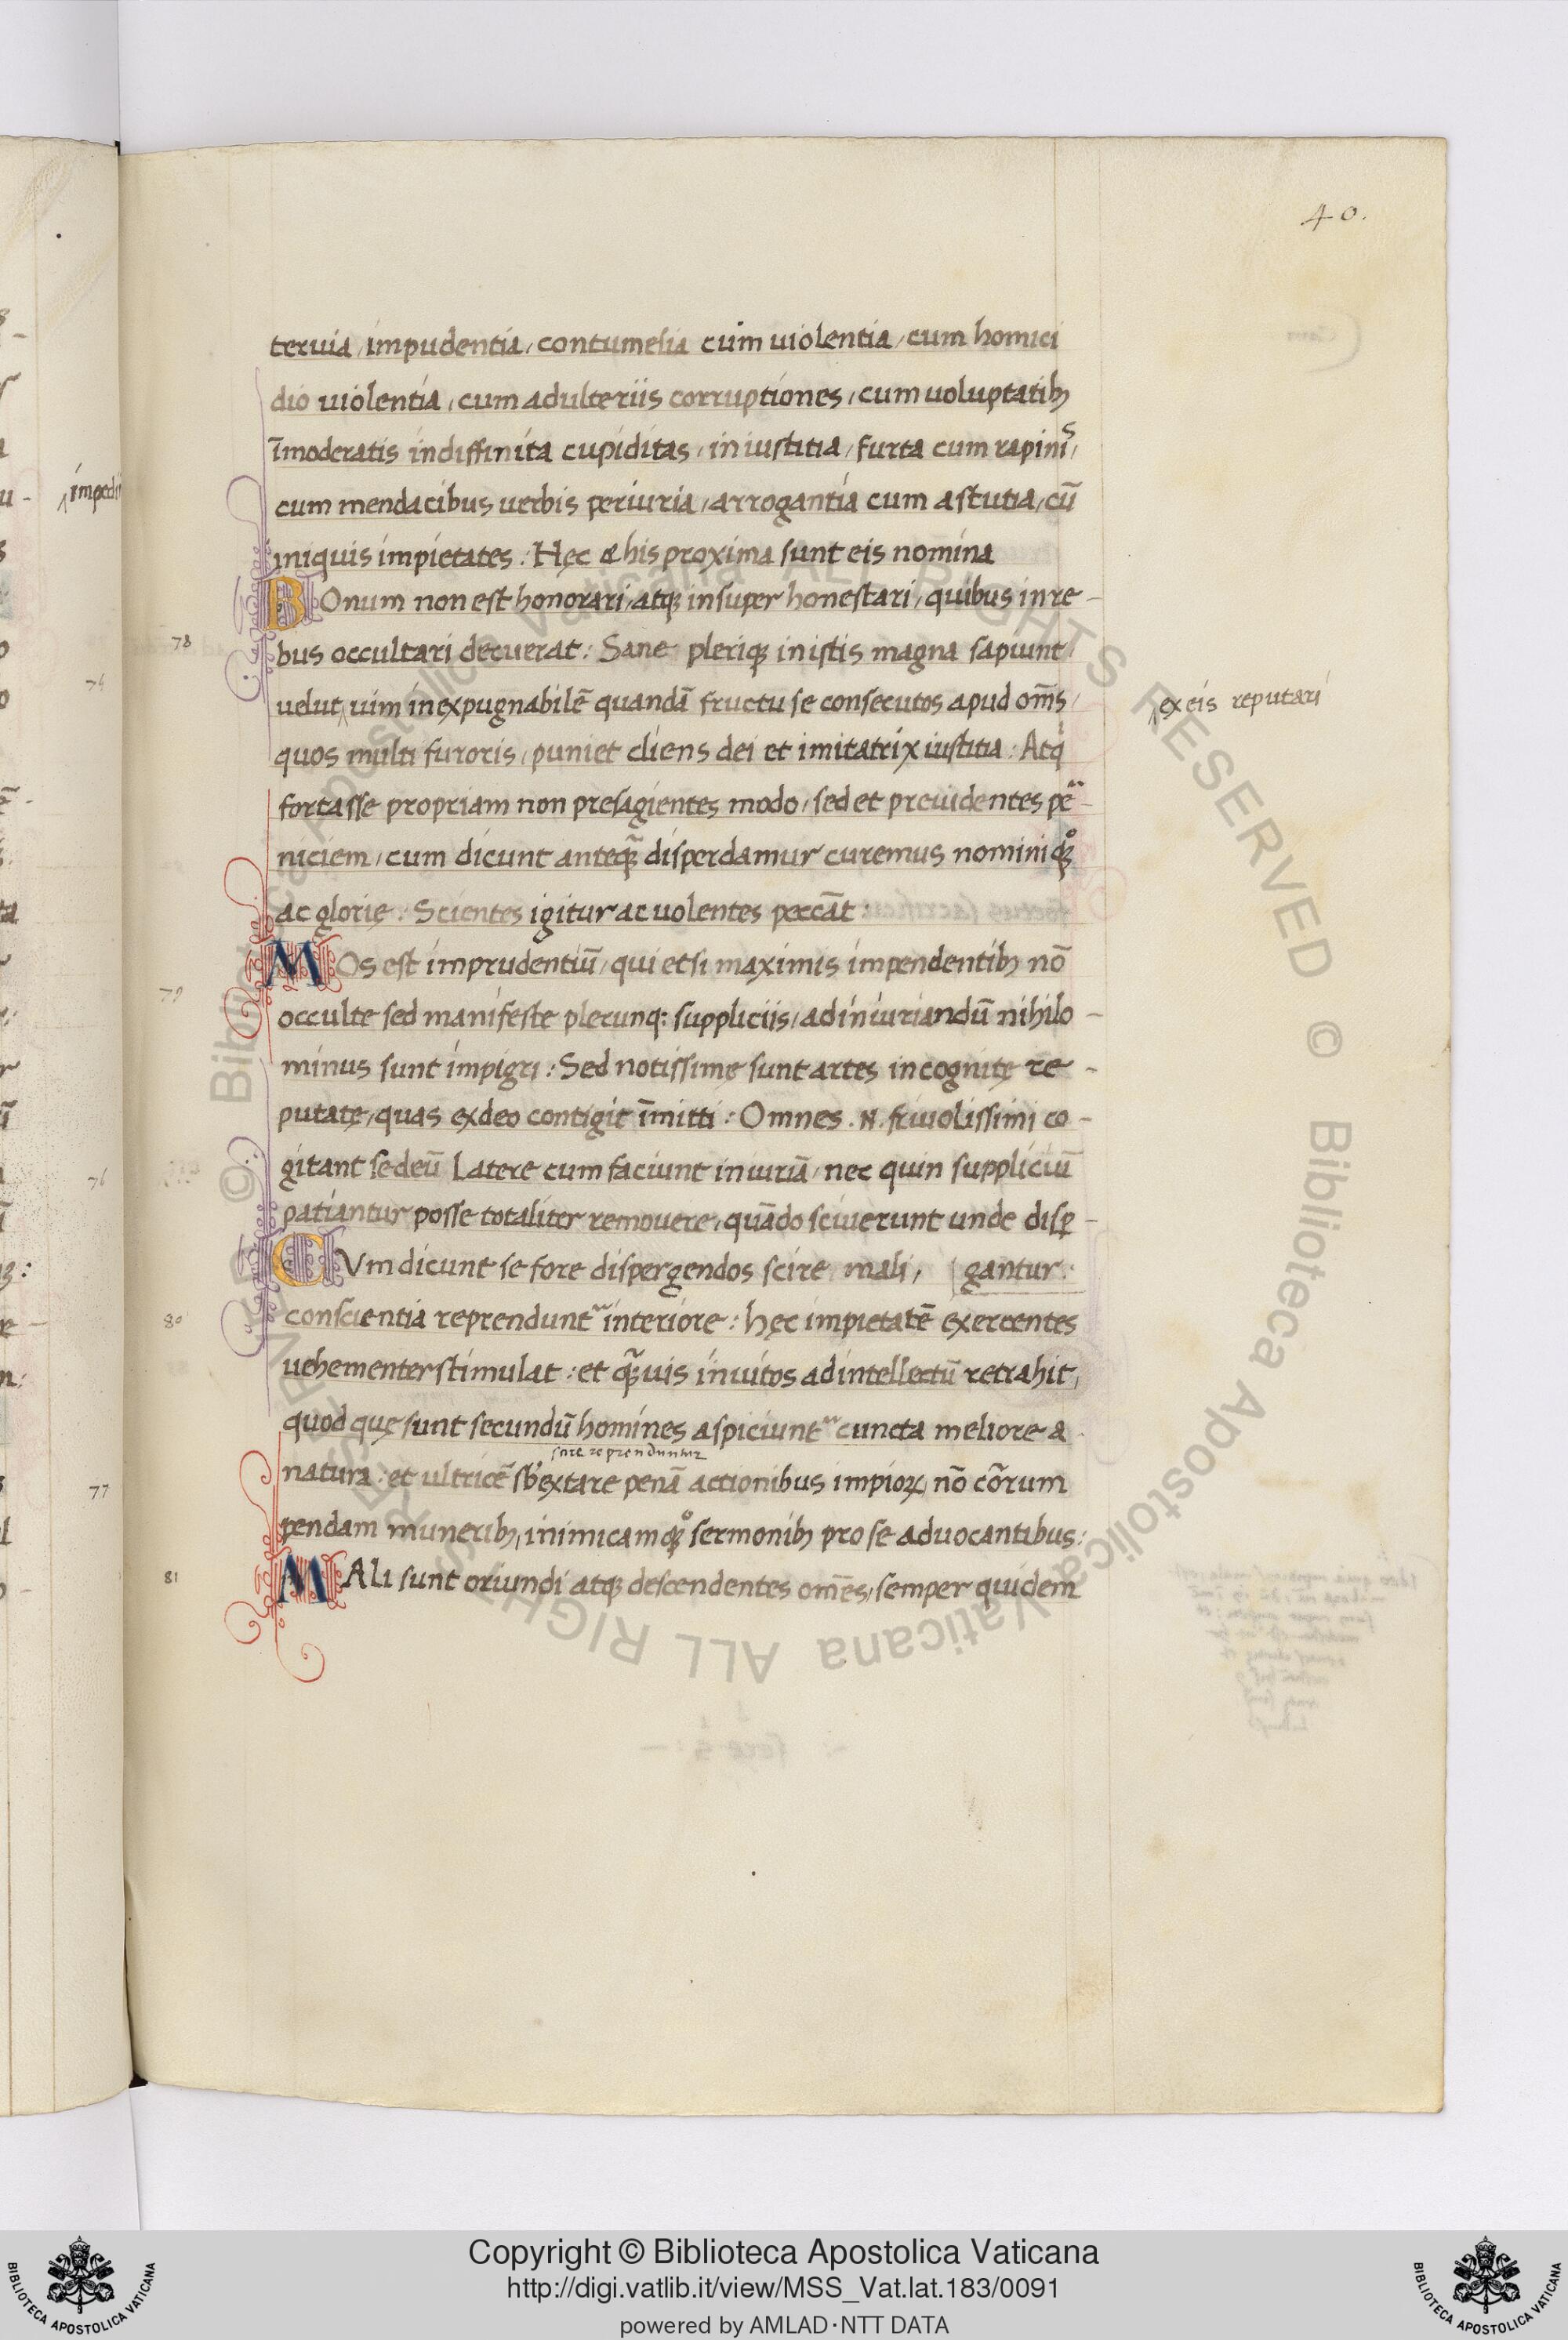 40.
teruia, impudentia, contumelia cum uiolentia, cum homici
dio uiolentia, cum adulteriis corruptiones, cum uoluptatibꝫ
īmoderatis indiffinita cupiditas, iniustitia, furta cum rapinis,
cum mendacibus uerbis periuria, arrogantia cum astutia, cū
iniquis impietates: Hęc & his proxima sunt eis nomina
BOnum non est honorari, atqꝫ insuper honestari, quibus in re-
78
bus occultari decuerat: Sane pleriqꝫ in istis magna sapiunt,
uelut ‸ uim inexpugnabilē quandā fructu se consecutos apud om̄s,
‸ ex eis reputari
quos multi furoris, puniet cliens dei et imitatrix iustitia: Atqꝫ
fortasse propriam non presagientes modo, sed et preuidentes pe-
niciem, cum dicunt anteqꝫ̄ disperdamur curemus nominiqꝫ
ac glorię: Scientes igitur ac uolentes peccāt:
MOs est imprudentiū, qui etsi maximis impendentibꝫ nō
79
occulte sed manifeste plerunqꝫ suppliciis, ad iniuriandū nihilo-
minus sunt impigri: Sed notissimę sunt artes incognitę re-
putatę, quas ex deo contigit īmitti: Omnes .N. friuolissimi co-
gitant se deū latere cum faciunt iniuriā, nec quin suppliciū
patiantur posse totaliter remouere, quādo sciuerunt unde disp̲-
CUm dicunt se fore dispergendos scire mali, | gantur:
80
conscientia reprendunt̃ interiore: hęc impietatē exercentes
uehementer stimulat: et qꝫ̄uis inuitos ad intellectū retrahit,
quod quę sunt secundū homines aspiciunt̃ cuncta meliore a
scire reprenduntur
natura: et ultricē sb' extare penā actionibus impioꝝ, nō cōrum
pendam muneribꝫ, inimicamqꝫ sermonibꝫ pro se aduocantibus:
81
MAli sunt oriundi atqꝫ descendentes om̄es, semper quidem
‸ impedi
76
77
© Biblioteca Apostolica Vaticana ALL RIGHTS RESERVED © Biblioteca Apostolica Vaticana ALL RIGHTS RESERVED
Copyright © Biblioteca Apostolica Vaticana
http://digi.vatlib.it/view/MSS_Vat.lat.183/0091
powered by AMLAD·NTT DATA
BIBLIOTECA APOSTOLICA VATICANA
BIBLIOTECA APOSTOLICA VATICANA